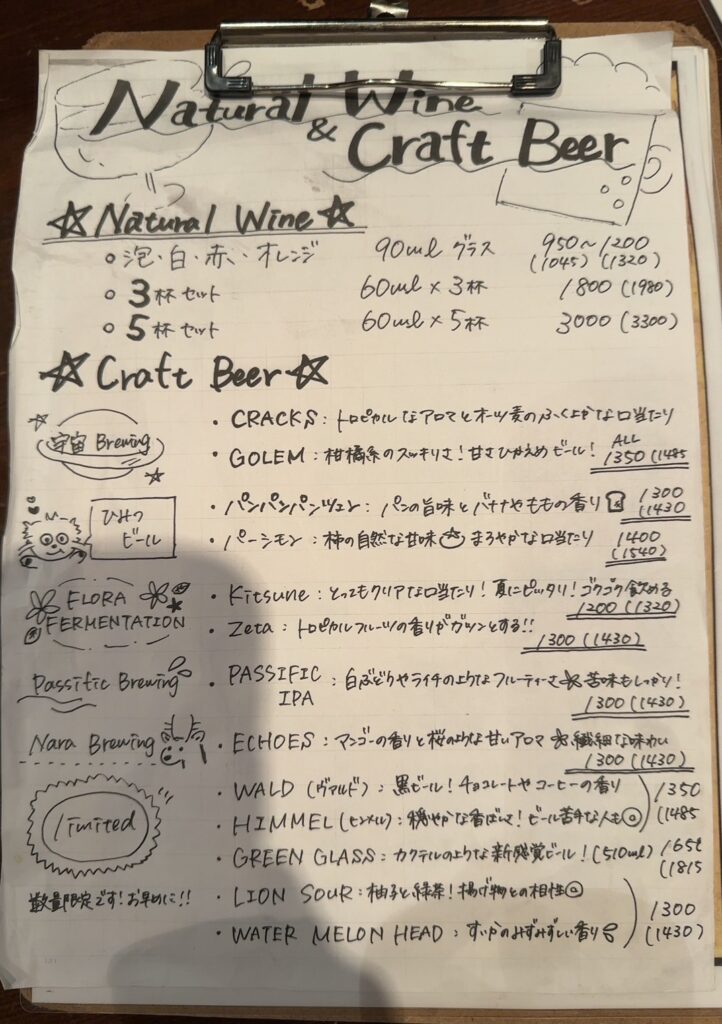 Natural Wine
& Craft Beer
☆Natural Wine☆
○ 泡・白・赤・オレンジ 90ml グラス 950〜1200
(1045) (1320)
○ 3杯セット 60ml×3杯 1800 (1980)
○ 5杯セット 60ml×5杯 3000 (3300)
☆Craft Beer☆
宇宙 Brewing
・CRACKS：トロピカルなアロマとオーツ麦のふくよかな口当たり
・GOLEM：柑橘系のスッキリさ！甘さひかえめビール！ ALL 1350 (1485
ひみつビール
・パンパンパンツェン：パンの旨味とバナナやももの香り 1300
(1430
・パーシモン：柿の自然な甘味 まろやかな口当たり 1400
(1540)
FLORA
FERMENTATION
・Kitsune：とってもクリアな口当たり！夏にピッタリ！ゴクゴク飲める
1200 (1320)
・Zeta：トロピカルフルーツの香りがガツンとする!!
1300 (1430)
Passific Brewing
・PASSIFIC IPA：白ぶどうやライチのようなフルーティーさ 苦味もしっかり！
1300 (1430)
Nara Brewing
・ECHOES：マンゴーの香りと桜のような甘いアロマ 繊細な味わい
1300 (1430)
limited
・WALD (ヴァルド)：黒ビール！チョコレートやコーヒーの香り
・HIMMEL (ヒンメル)：穏やかな香ばしさ！ビール苦手な人も◎
1350
(1485
・GREEN GLASS：カクテルのような新感覚ビール！(510ml) 165
(1815
数量限定です！お早めに!!
・LION SOUR：柚子と緑茶！揚げ物との相性◎
・WATER MELON HEAD：すいかのみずみずしい香り
1300
(1430)